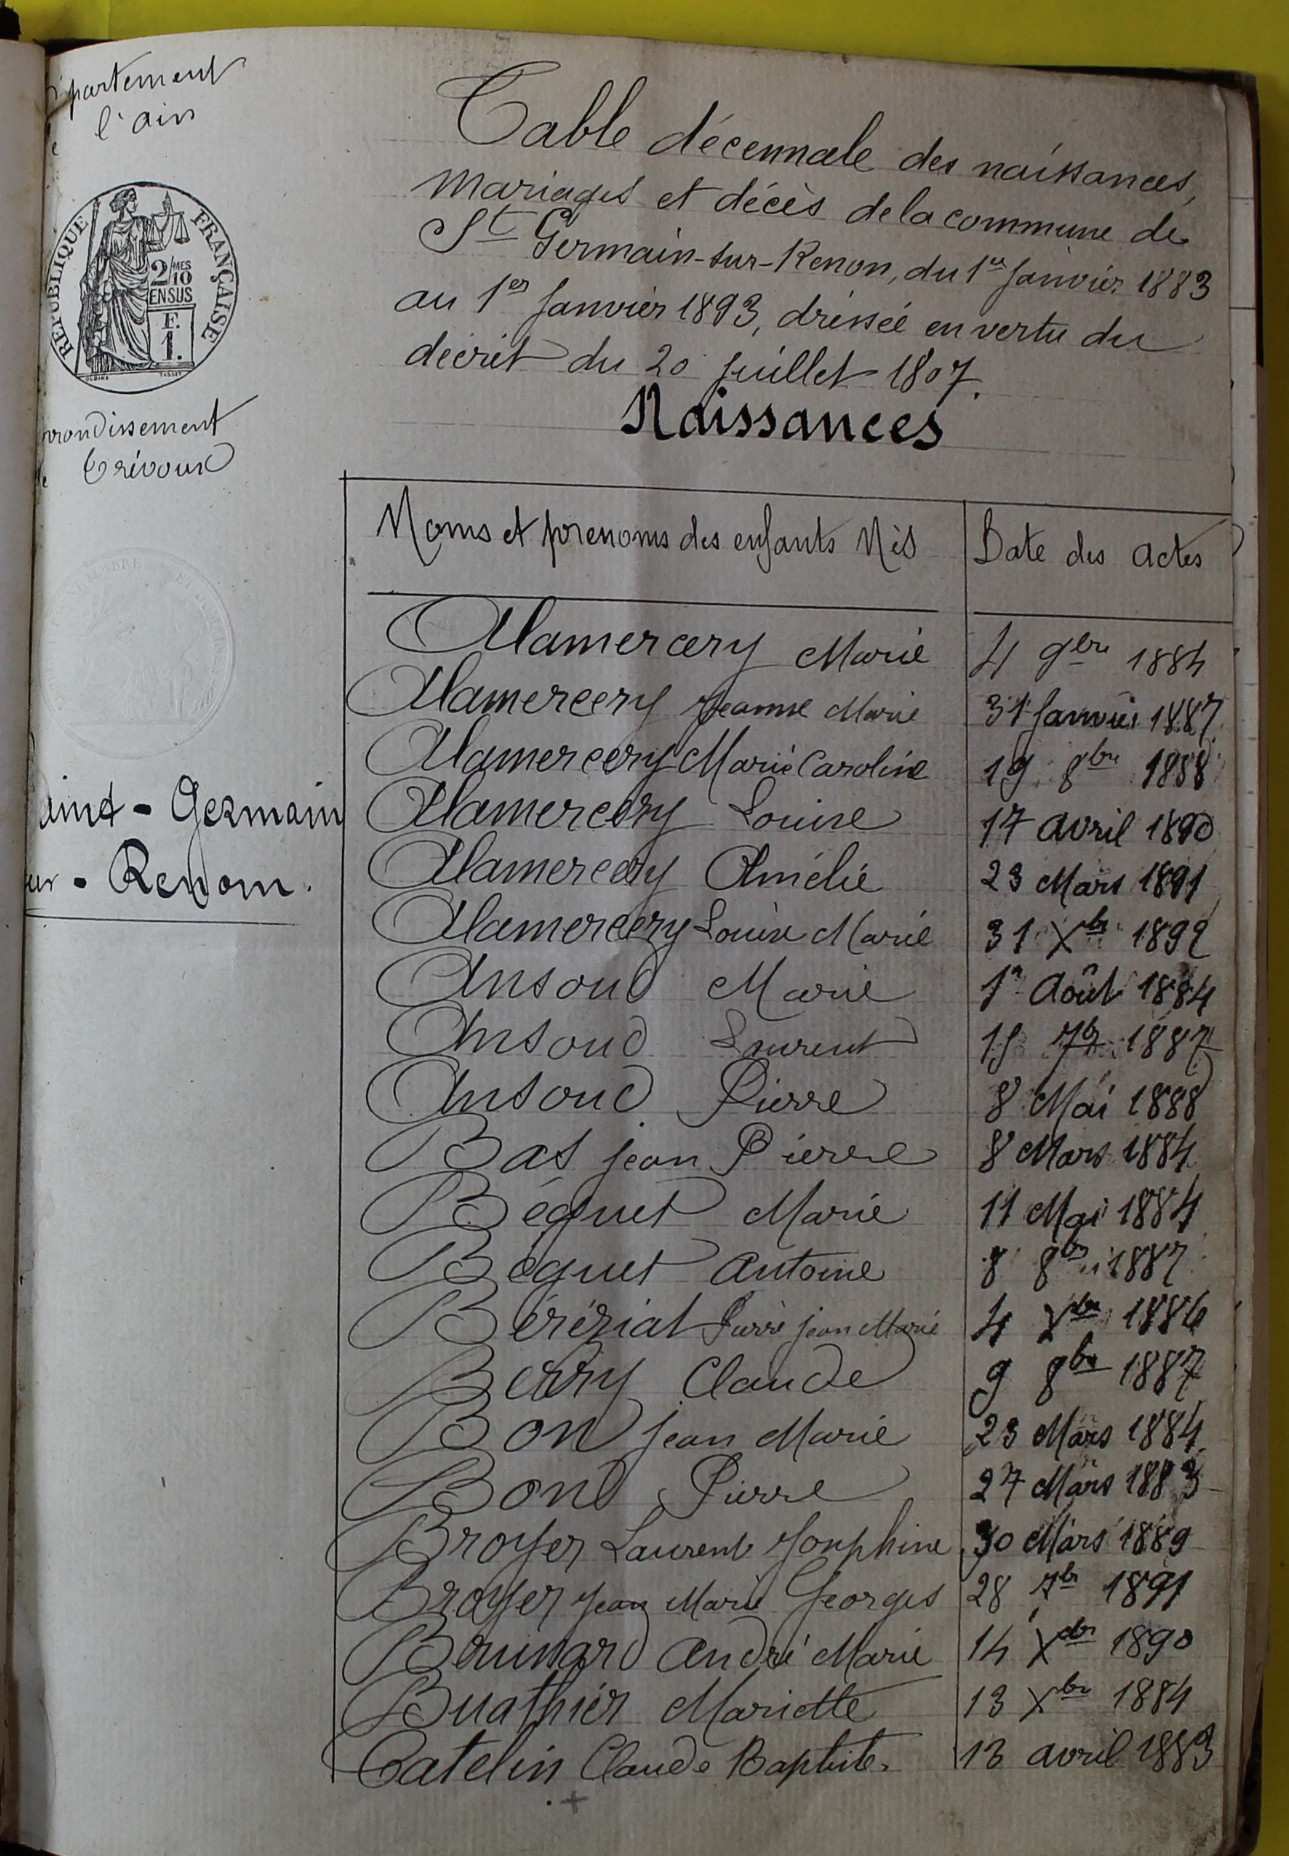 partement
l'ain
RÉPUBLIQUE FRANÇAISE
2/MES
10
EN SUS
F.
1.
rrondissement
Trévoux
aint - Germain
ur - Renom.
Table décennale des naissances,
Mariages et décès de la commune de
St Germain-sur-Renon, du 1er Janvier 1883
au 1er Janvier 1893, dressée en vertu du
décrèt du 20 juillet 1807.
Naissances
Noms et prenoms des enfants Nés | Date des actes
Alamercery Marie | 4 9bre 1884
Alamercery Jeanne Marie | 31 Janvier 1887
Alamercery Marie Caroline | 19 8bre 1888
Alamercery Louise | 17 avril 1890
Alamercery Amélie | 23 Mars 1891
Alamercery Louise Marie | 31 Xbre 1892
Ansoud Marie | 1er Août 1884
Ansoud Laurent | 15 7bre 1887
Ansoud Pierre | 8 Mai 1888
Bas jean Pierre | 8 Mars 1884
Béguet Marie | 11 Mai 1884
Béguet Antoine | 8 8bre 1887
Béréziat Pierre jean Marie | 4 Xbre 1886
Berry Claude | 9 8bre 1887
Bon jean Marie | 23 Mars 1884
Bond Pierre | 27 Mars 1883
Broyer Laurent Josephine | 30 Mars 1889
Broyer Jean Marie Georges | 28 7bre 1891
Brunard André Marie | 14 Xbre 1890
Buathier Mariette | 13 Xbre 1884
Catelin Claude Baptiste. | 13 avril 1883